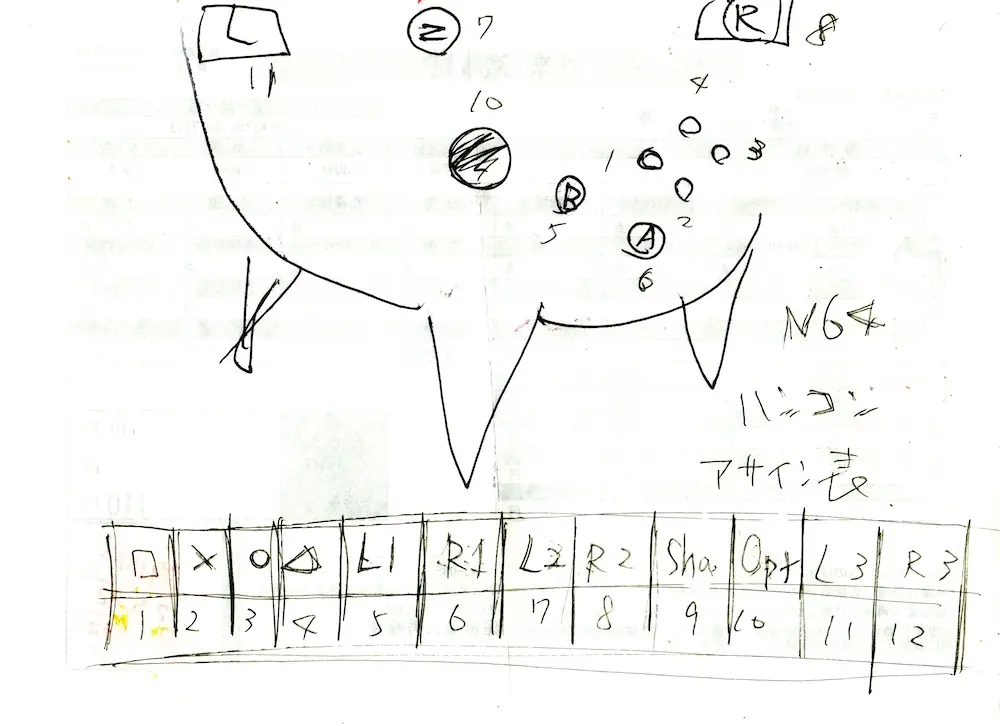 L Z 7 R 8
11
10 4
1 3
B 5 2
A
6
N64
ハンコン
アサイン表
□ × ○ △ L1 R1 L2 R2 Sha Opt L3 R3
1 2 3 4 5 6 7 8 9 10 11 2